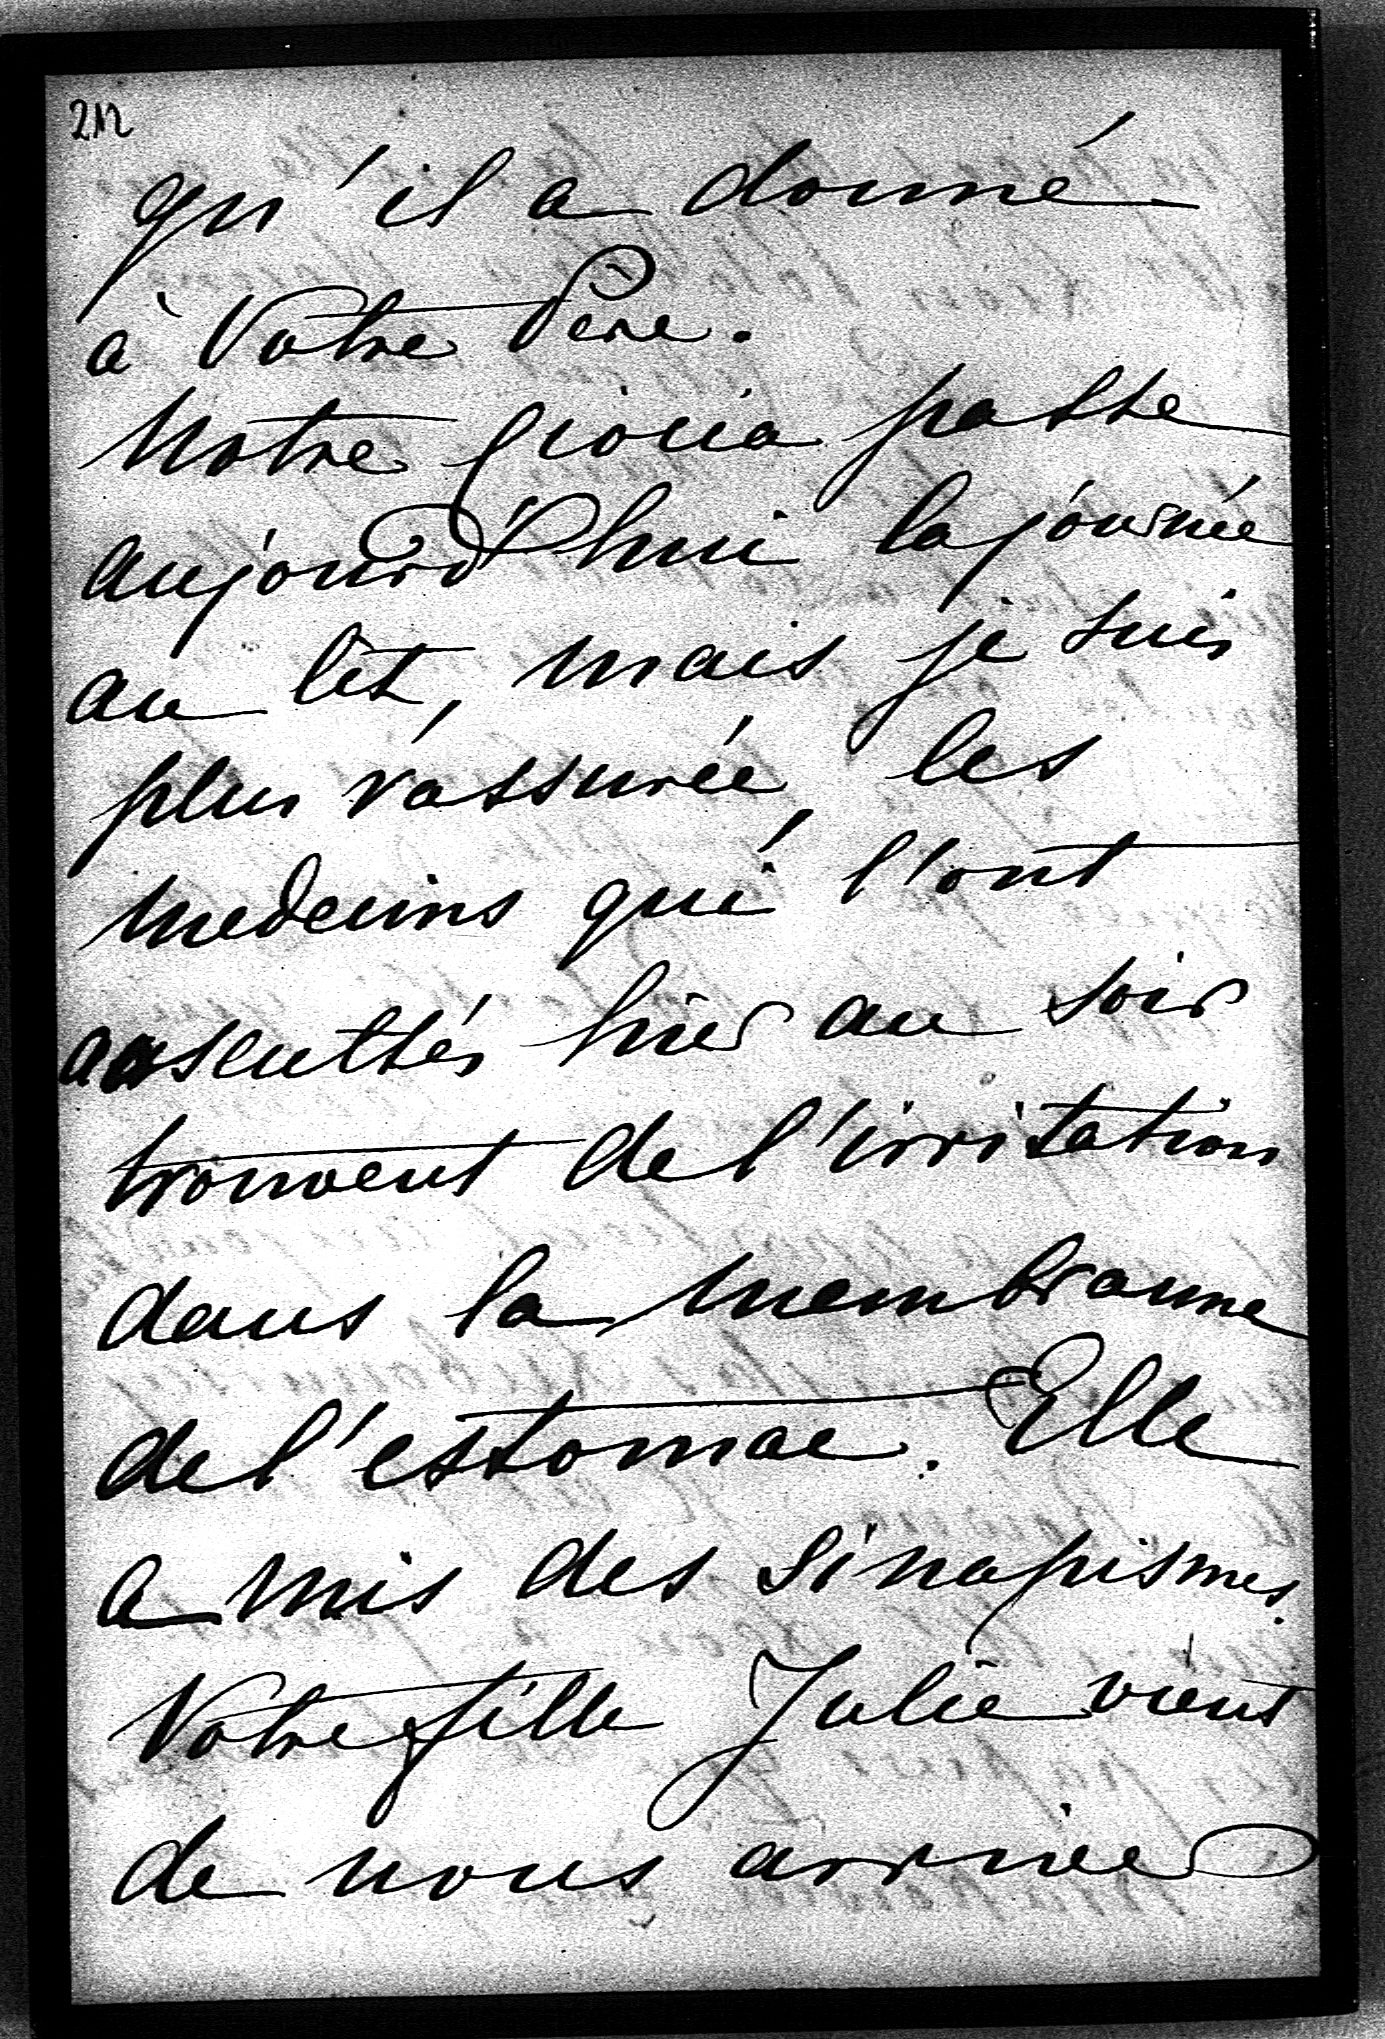 212
qu'il a donné
à Votre Père.
Notre gioia passe
aujourd'hui la journée
au lit, mais je suis
plus rassurée, les
medecins qui l'ont
auscultés hier au soir
trouvent de l'irritation
dans la membranne
de l'estomac. Elle
a mis des sinapismes.
Votre fille Julie vient
de nous arriver